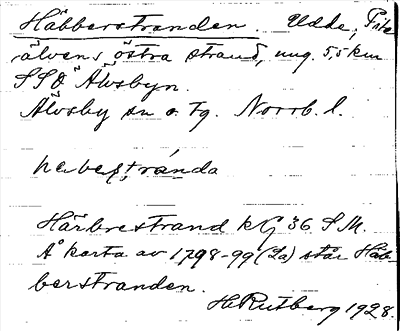 Häbberstranden. Udde, Pite
älvens östra strand, ung. 5,5 km
SSÖ Älvsbyn.
Älvsby sn o. tg. Norrb. l.
Härbrestrand kG 36 S.M.
Å karta av 1798-99 (La) står Häb-
berstranden.
H. Rutberg 1928.